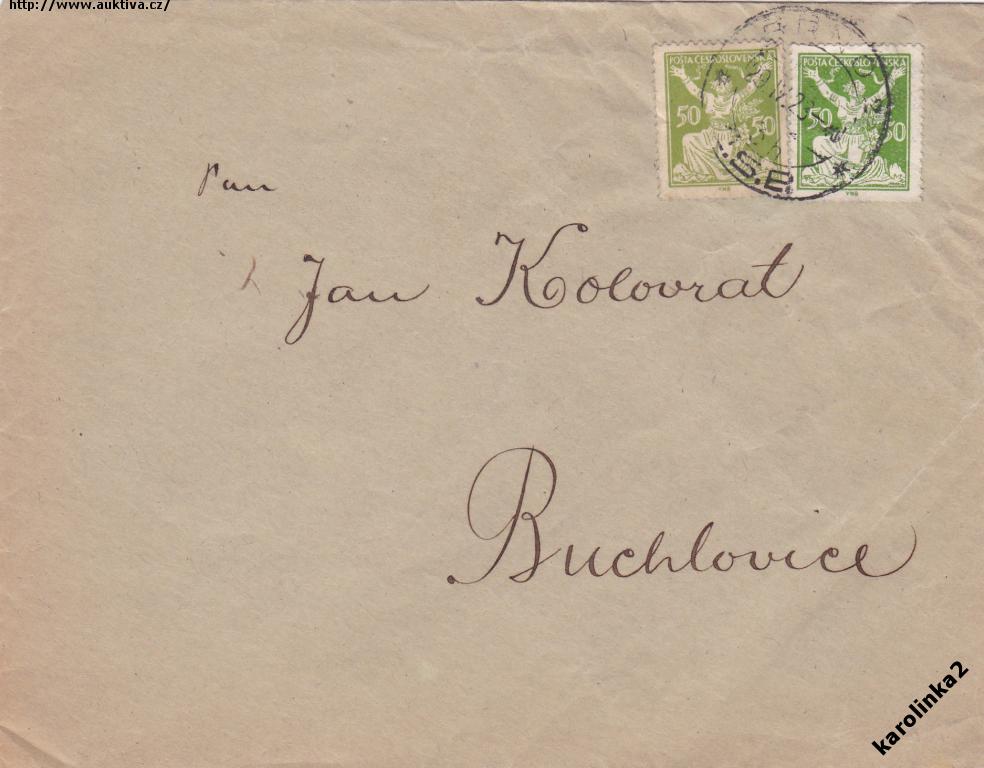 http://www.auktiva.cz/
POŠTA ČESKOSLOVENSKÁ
50 50
VHB
POŠTA ČESKOSLOVENSKÁ
50 50
VHB
Pan
Jan Kolovrat
Buchlovice
karolinka2